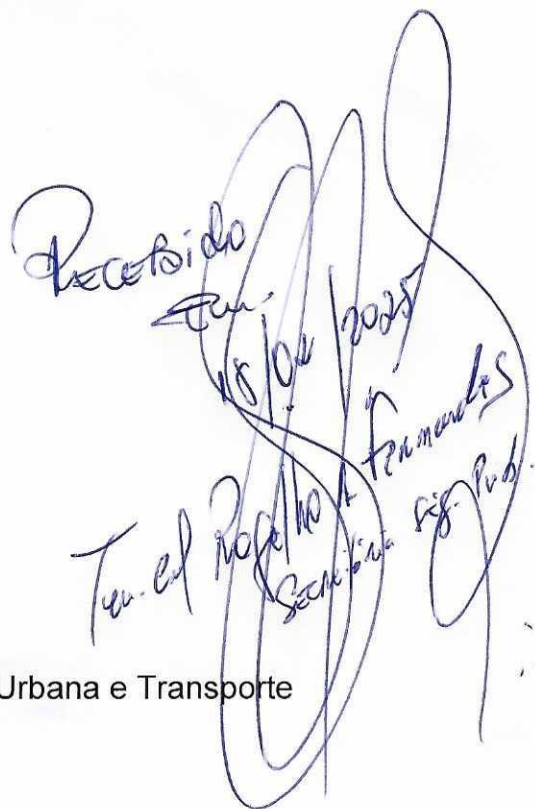 Recebido
Em.
18/02/2025
Ten. Cel Rogelho A Fernandes
Secretária Seg. Pub.
Urbana e Transporte